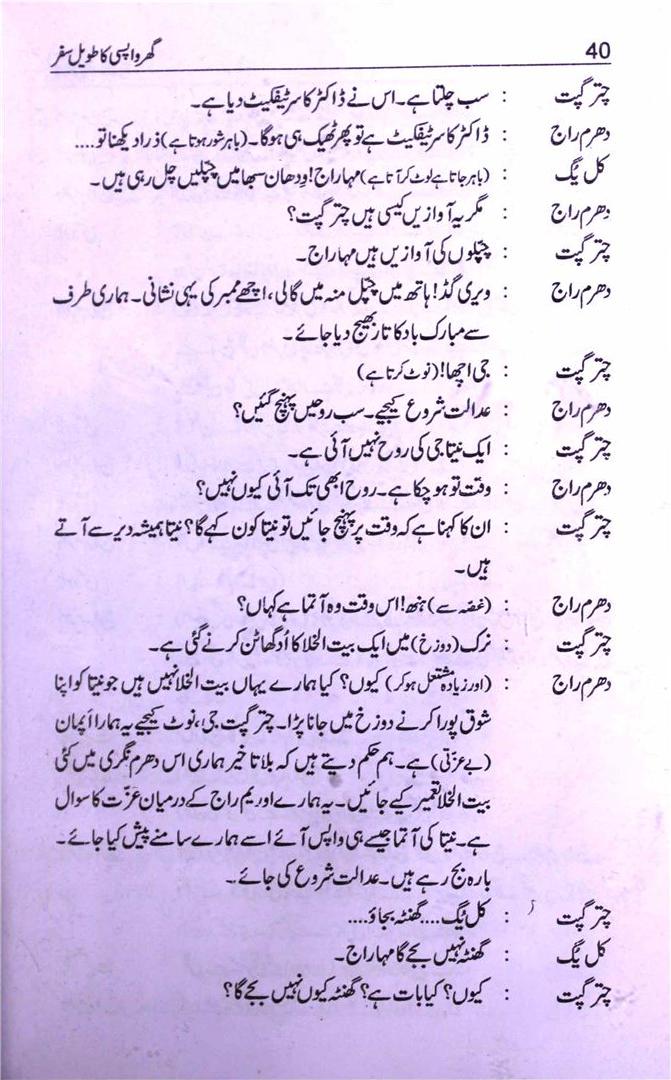 40 گھر واپسی کا طویل سفر
چتر گپت : سب چلتا ہے۔ اس نے ڈاکٹر کا سرٹیفکیٹ دیا ہے۔
دھرم راج : ڈاکٹر کا سرٹیفکیٹ ہے تو پھر ٹھیک ہی ہوگا۔ (باہر شور ہوتا ہے) ذرا دیکھنا تو....
کل یگ : (باہر جاتا ہے لوٹ کر آتا ہے) مہاراج! ودھان سبھا میں چپّلیں چل رہی ہیں۔
دھرم راج : مگر یہ آوازیں کیسی ہیں چتر گپت؟
چتر گپت : چپّلوں کی آوازیں ہیں مہاراج۔
دھرم راج : ویری گڈ! ہاتھ میں چپّل منہ میں گالی، اچھے ممبر کی یہی نشانی۔ ہماری طرف
سے مبارک باد کا تار بھیج دیا جائے۔
چتر گپت : جی اچھا! (نوٹ کرتا ہے)
دھرم راج : عدالت شروع کیجیے۔ سب روحیں پہنچ گئیں؟
چتر گپت : ایک نیتا جی کی روح نہیں آئی ہے۔
دھرم راج : وقت تو ہو چکا ہے۔ روح ابھی تک آئی کیوں نہیں؟
چتر گپت : ان کا کہنا ہے کہ وقت پر پہنچ جائیں تو نیتا کون کہے گا؟ نیتا ہمیشہ دیر سے آتے
ہیں۔
دھرم راج : (غصہ سے) ہنھ! اس وقت وہ آتما ہے کہاں؟
چتر گپت : نرک (دوزخ) میں ایک بیت الخلا کا اُدگھاٹن کرنے گئی ہے۔
دھرم راج : (اور زیادہ مشتعل ہوکر) کیوں؟ کیا ہمارے یہاں بیت الخلا نہیں ہیں جو نیتا کو اپنا
شوق پورا کرنے دوزخ میں جانا پڑا۔ چتر گپت جی، نوٹ کیجیے یہ ہمارا اَپمان
(بے عزّتی) ہے۔ ہم حکم دیتے ہیں کہ بلا تاخیر ہماری اس دھرم نگری میں کئی
بیت الخلا تعمیر کیے جائیں۔ یہ ہمارے اور یم راج کے درمیان عزّت کا سوال
ہے۔ نیتا کی آتما جیسے ہی واپس آئے اسے ہمارے سامنے پیش کیا جائے۔
بارہ بج رہے ہیں۔ عدالت شروع کی جائے۔
چتر گپت : کل یگ.... گھنٹہ بجاؤ....
کل یگ : گھنٹہ نہیں بجے گا مہاراج۔
چتر گپت : کیوں؟ کیا بات ہے؟ گھنٹہ کیوں نہیں بجے گا؟